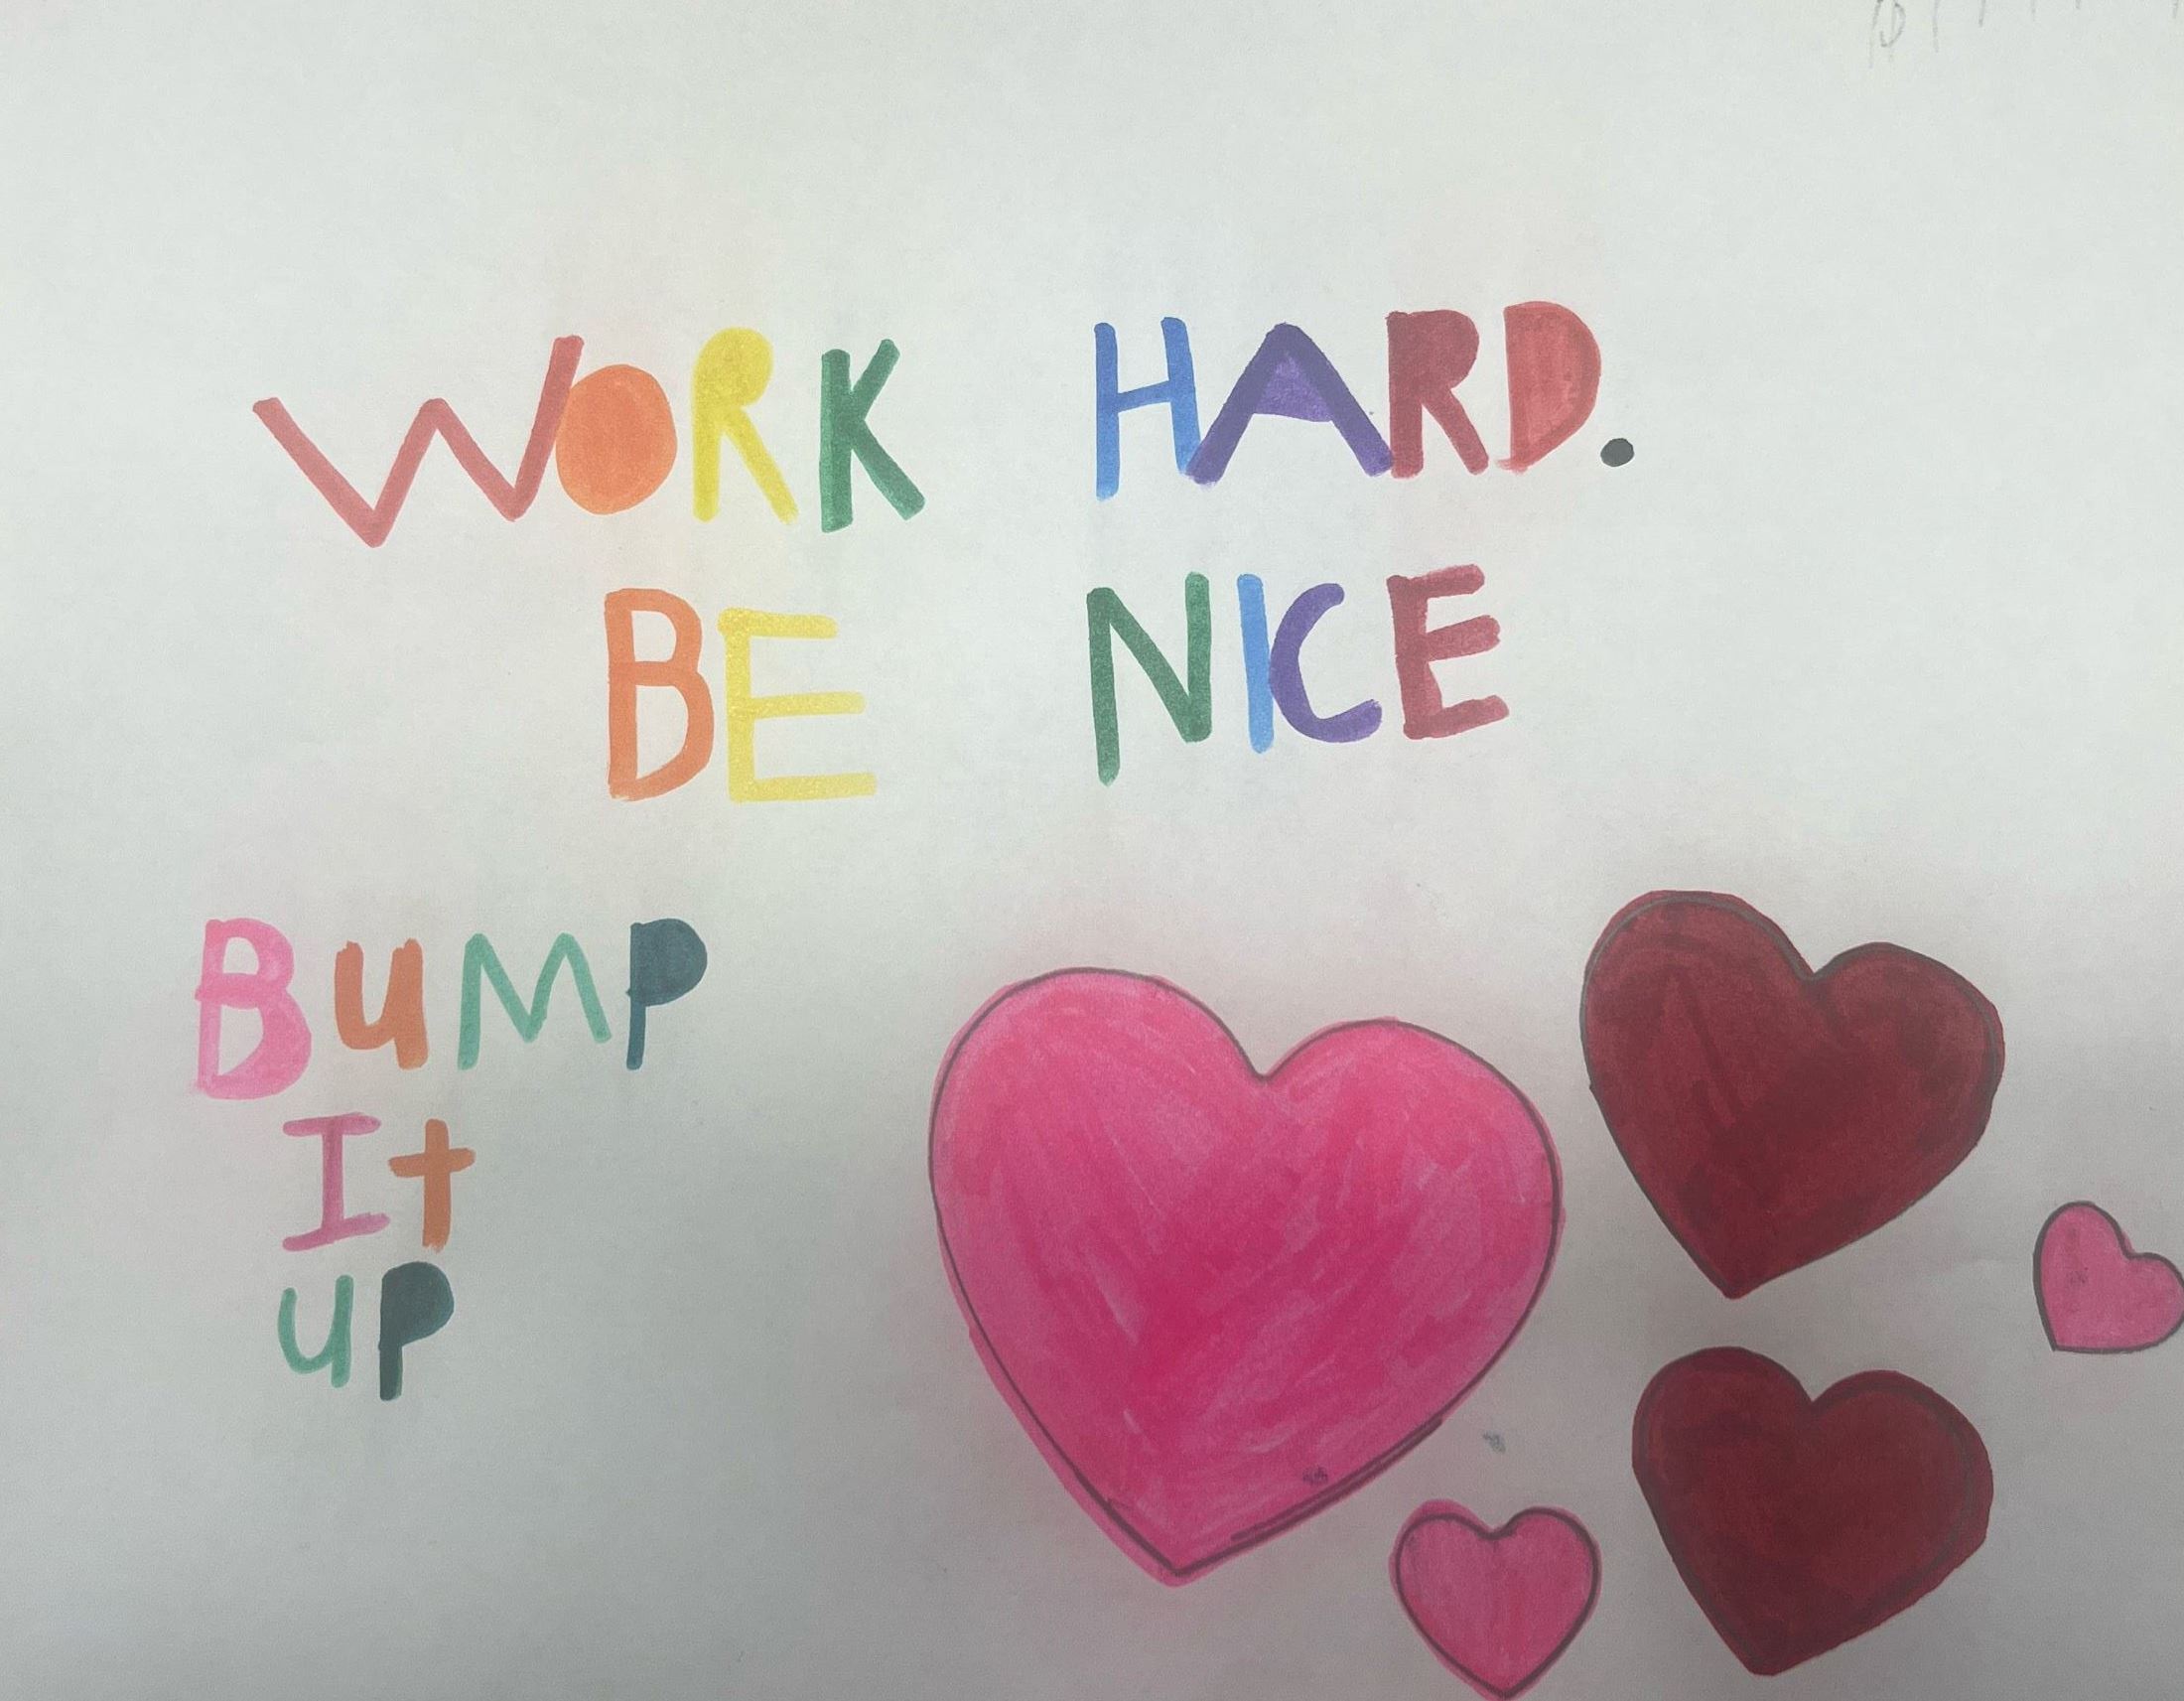 WORK HARD.
BE NICE
BuMP
It
uP